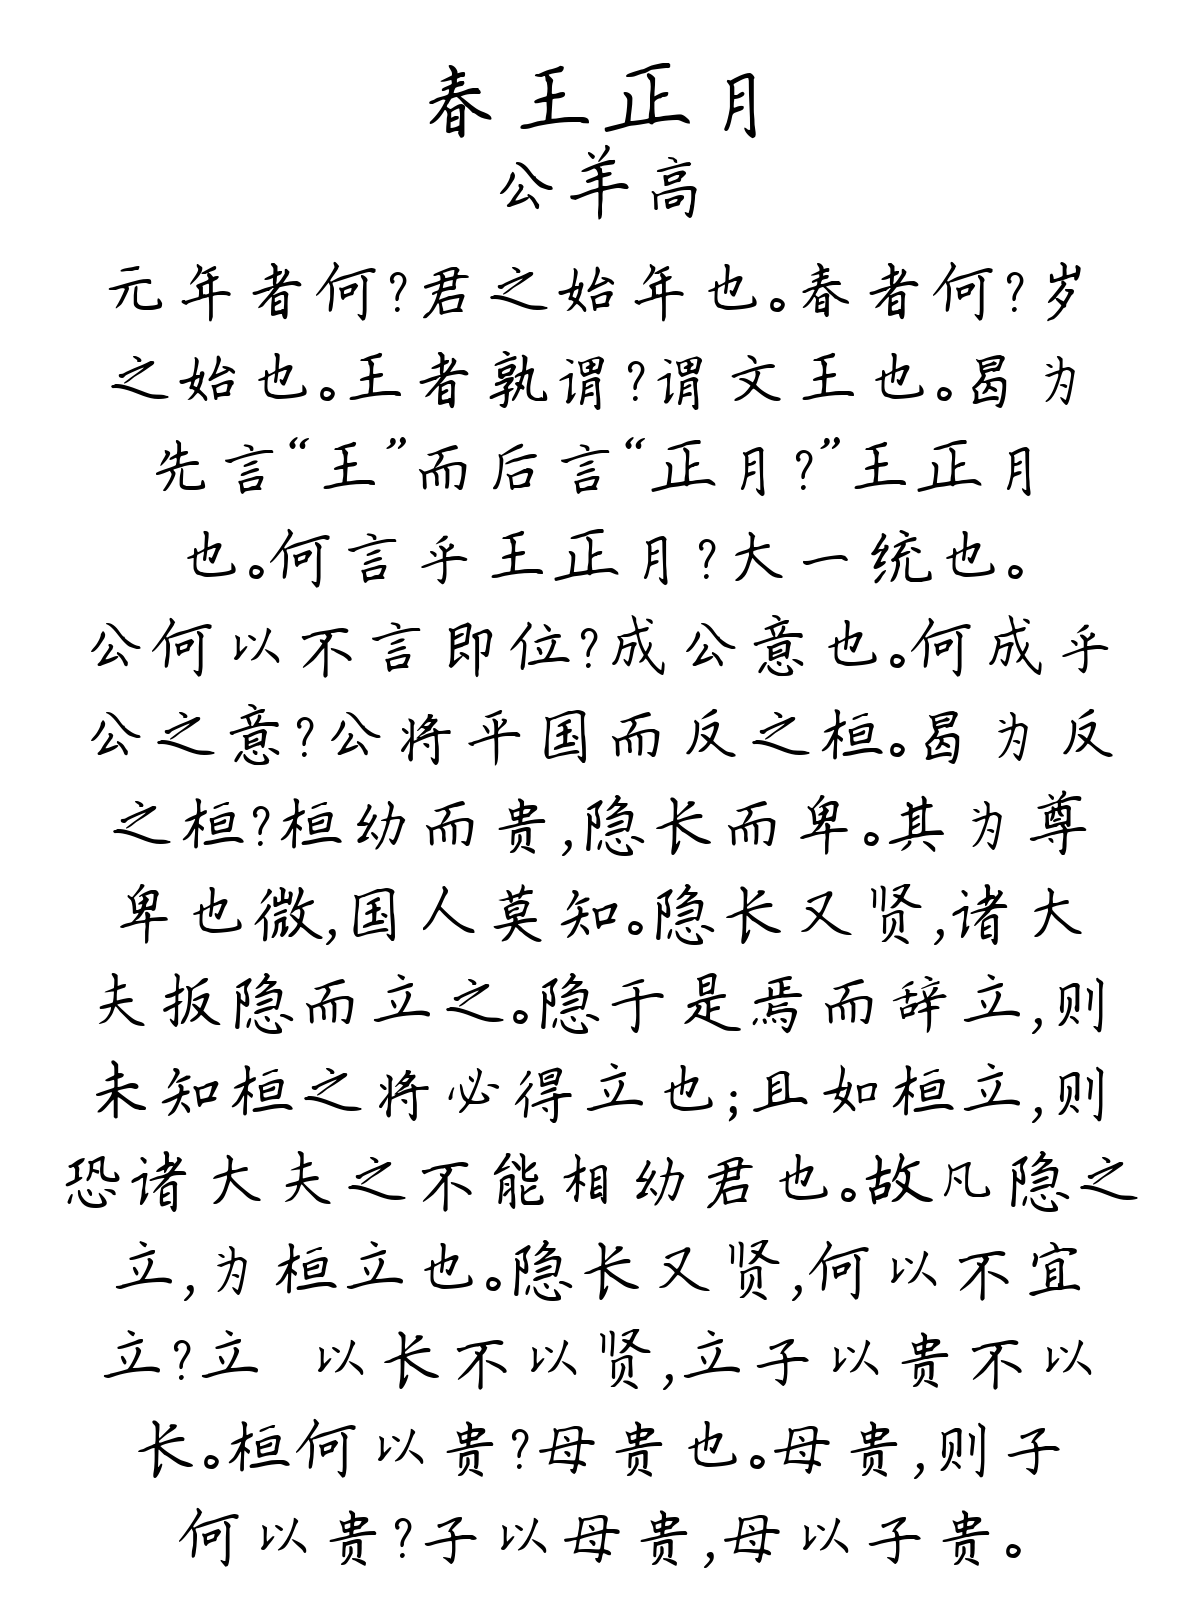 春王正月
公羊高
元年者何?君之始年也。春者何?岁
之始也。王者孰谓?谓文王也。曷为
先言“王”而后言“正月?”王正月
也。何言乎王正月?大一统也。
公何以不言即位?成公意也。何成乎
公之意?公将平国而反之桓。曷为反
之桓?桓幼而贵,隐长而卑。其为尊
卑也微,国人莫知。隐长又贤,诸大
夫扳隐而立之。隐于是焉而辞立,则
未知桓之将必得立也;且如桓立,则
恐诸大夫之不能相幼君也。故凡隐之
立,为桓立也。隐长又贤,何以不宜
立?立 以长不以贤,立子以贵不以
长。桓何以贵?母贵也。母贵,则子
何以贵?子以母贵,母以子贵。